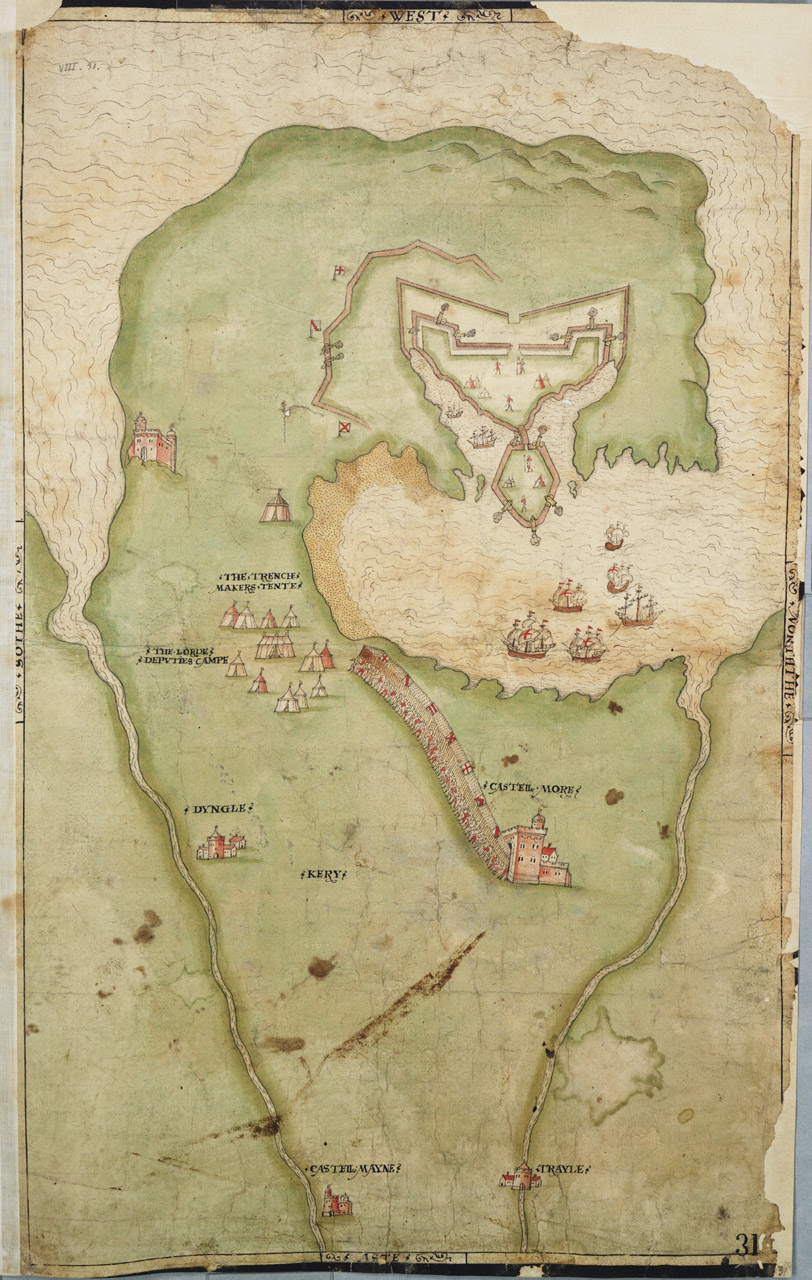 WEST
VIII. 31.
THE TRENCH
MAKERS TENTE
THE LORDE
DEPVTIES CAMPE
SOTHE
NORTHE
CASTELL MORE
DYNGLE
KERY
CASTELL MAYNE
TRAYLE
31